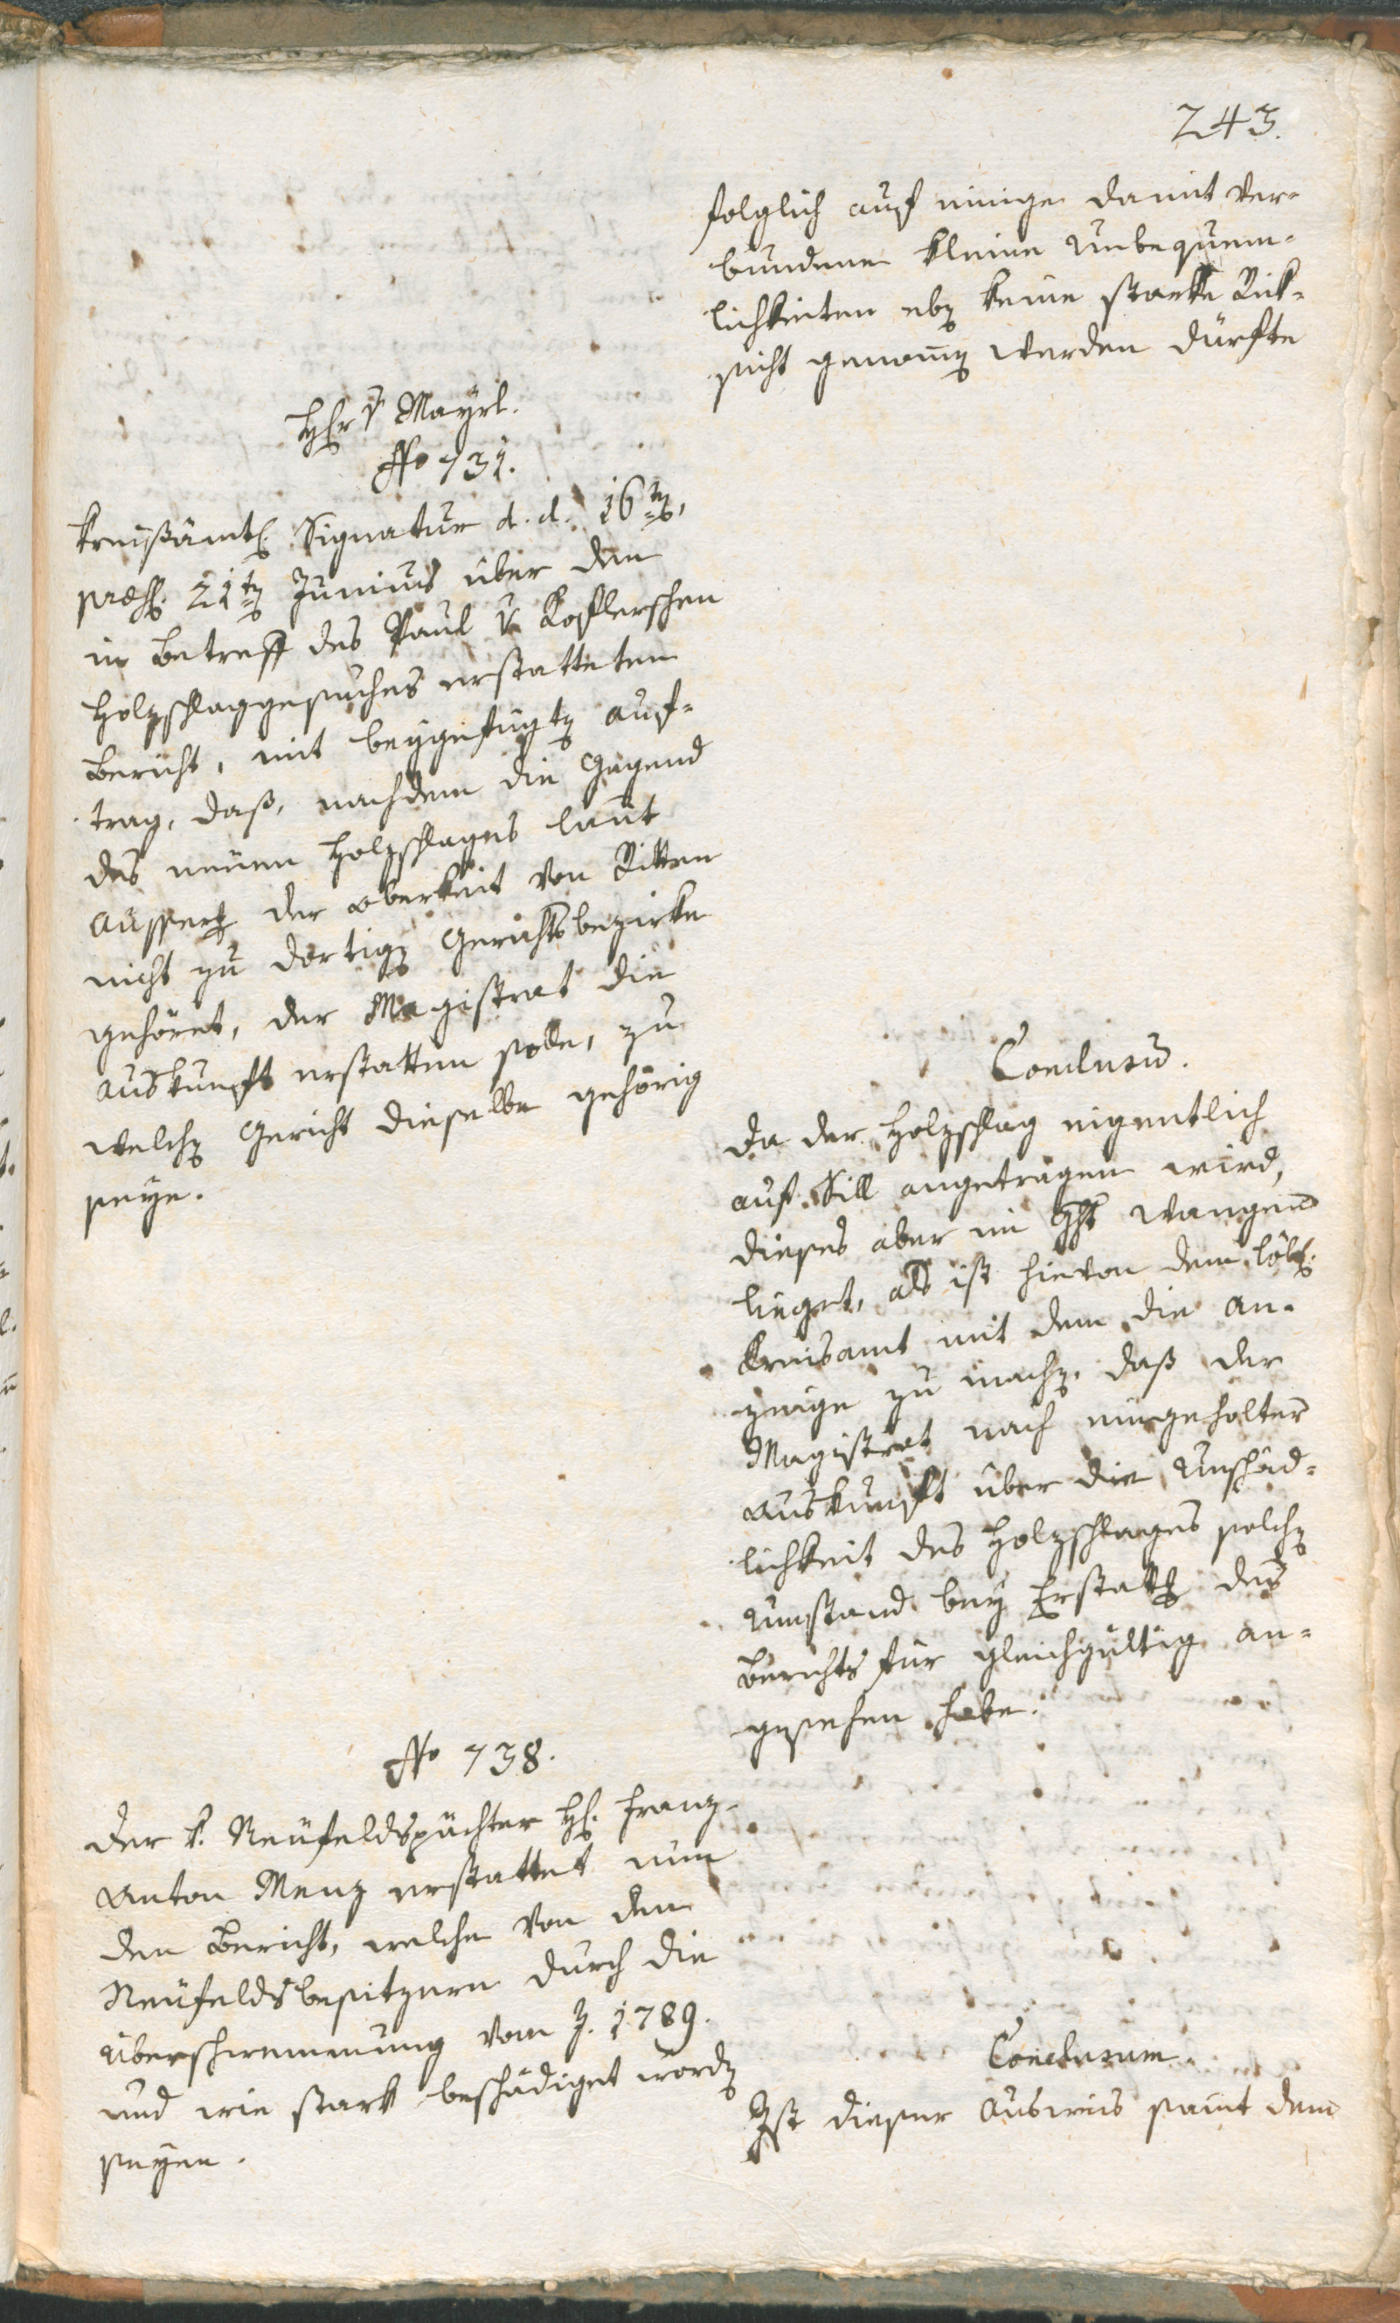 243.
folglich auf einige damit ver-
bundene kleine Unbequem-
lichkeiten eben keine starke Rük-
sicht genommen werden dürfte
Hhr v Mayrl.
No 731.
Kreyßämtl. Signatur d. d. 16ten,
præs. 21ten Junius über den
in Betreff des Paul v Koflerschen
Holzschlaggesuches erstatteten
Bericht, mit beygefügten Auf-
trag, daß, nachdem die Gegend
des neuen Holzschlages laut
Aüsserg der Oberkeit von Ritten
nicht zu dortigen Gerichtsbezirke
gehöret, der Magistrat die
Auskunft erstatten solle, zu
welchen Gericht dieselbe gehörig
seye.
Conclusum.
Da der Holzschlag eigentlich
auf Sill angetragen wird,
dieses aber im Ght Wangen
lieget, als ist hievon dem löbl.
Kreisamt mit dem die An-
zeige zu machen, daß der
Magistrat nach eingeholter
Auskunft über die Unschäd-
lichkeit des Holzschlages solchen
Umstand bey Erstattg des
Berichts für gleichgültig an-
gesehen habe.
No 738.
Der k. Neufeldspächter H. Franz
Anton Menz erstattet nun
den Bericht, welche von den
Neufeldsbesitzern durch die
Überschwemmung vom J. 1789.
und wie stark beschädiget worden
seyen.
Conclusum.
Ist dieser Ausweis samt dem